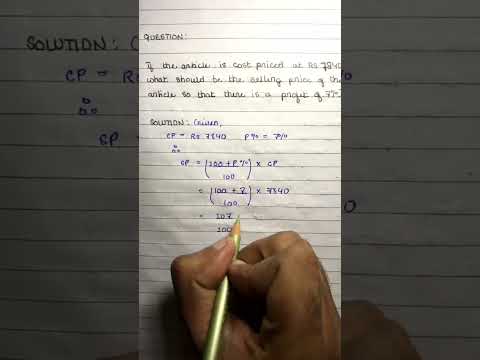 QUESTION:
If the article is cost priced at Rs 7840
what should be the selling price of the
article so that there is a profit of 7%.
SOLUTION: Given,
CP = Rs 7840 P% = 7%
∴
CP = (100 + P% / 100) × CP
= (100 + 7 / 100) × 7840
= 107
100
SOLUTION:
CP = R
∴